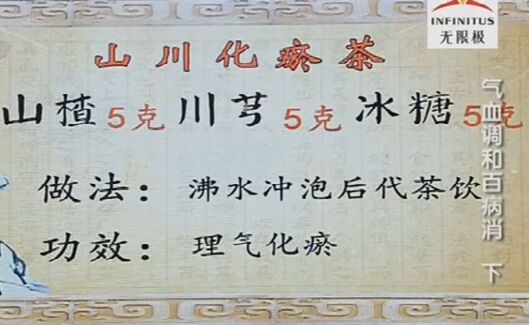 INFINITUS
无限极
山川化瘀茶
山楂5克 川芎5克 冰糖5克
做法：沸水冲泡后代茶饮
功效：理气化瘀
气血调和百病消 下